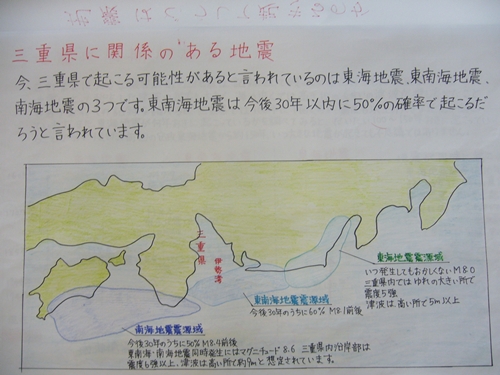 三重県に関係のある地震
今、三重県で起こる可能性があると言われているのは東海地震、東南海地震、
南海地震の3つです。東南海地震は今後30年以内に50%の確率で起こるだ
ろうと言われています。
三重県
伊勢湾
東海地震震源域
いつ発生してもおかしくない M8.0
三重県内ではゆれの大きい所で
震度5強
津波は高い所で5m以上
東南海地震震源域
今後30年のうちに60% M8.1前後
南海地震震源域
今後30年のうちに50% M8.4前後
東南海・南海地震同時発生にはマグニチュード8.6 三重県内沿岸部は
震度6強以上、津波は高い所で約9mと想定されています。